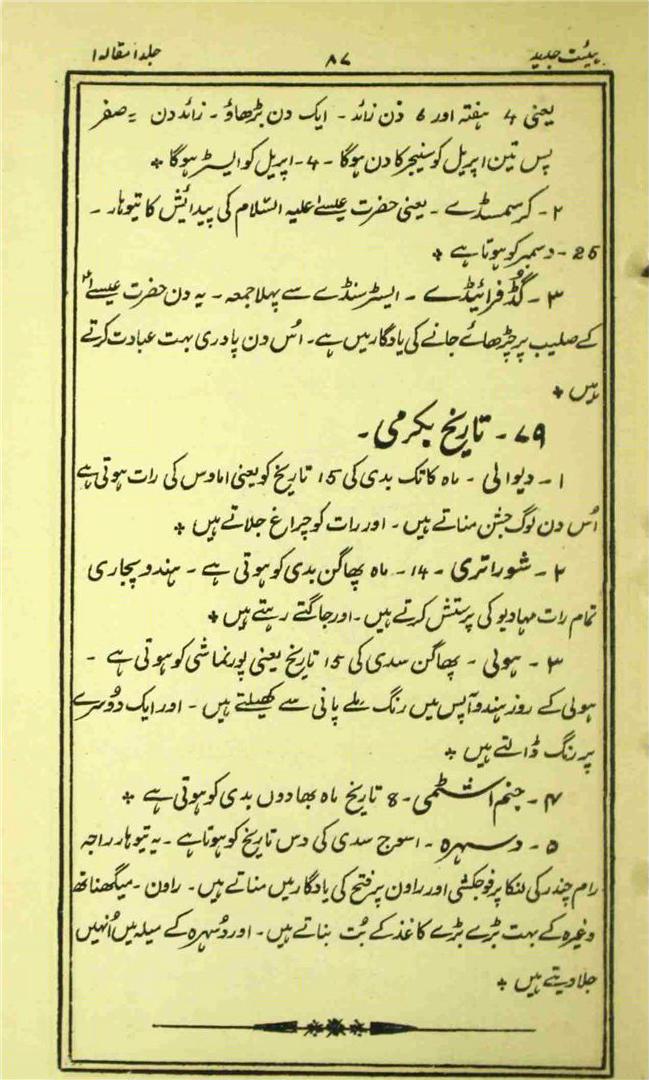 ہیئت جدید ۸۷ جلد ۱ مقالہ ۱
یعنی 4 ہفتہ اور 6 دن زائد ۔ ایک دن بڑھاؤ ۔ زائد دن = صفر
پس تین اپریل کو سنیچر کا دن ہوگا ۔ 4 ۔ اپریل کو ایسٹر ہوگا ✤
۲ ۔ کرسمسڈے ۔ یعنی حضرت عیسےٰ علیہ السّلام کی پیدائش کا تیوہار ۔
25 ۔ دسمبر کو ہوتا ہے ✤
۳ ۔ گُڈ فرائیڈے ۔ ایسٹر سنڈے سے پہلا جمعہ ۔ یہ دن حضرت عیسےٰؑ
کے صلیب پر چڑھائے جانے کی یادگار میں ہے ۔ اُس دن پادری بہت عبادت کرتے
ہیں ✤
۷۹ ۔ تاریخ بکرمی ۔
۱ ۔ دیوالی ۔ ماہ کاتک بدی کی 15 تاریخ کو یعنی اماوس کی رات ہوتی ہے
اُس دن لوگ جشن مناتے ہیں ۔ اور رات کو چراغ جلاتے ہیں ✤
۲ ۔ شوراتری ۔ 14 ۔ ماہ پھاگن بدی کو ہوتی ہے ۔ ہندو پجاری
تمام رات مہادیو کی پرستش کرتے ہیں ۔ اور جاگتے رہتے ہیں ✤
۳ ۔ ہولی ۔ پھاگن سدی کی 15 تاریخ یعنی پورنماشی کو ہوتی ہے ۔
ہولی کے روز ہندو آپس میں رنگ ملے پانی سے کھیلتے ہیں ۔ اور ایک دُوسرے
پر رنگ ڈالتے ہیں ✤
۴ ۔ جنم اشٹمی ۔ 8 تاریخ ماہ بھادوں بدی کو ہوتی ہے ✤
۵ ۔ دسہرہ ۔ اسوج سدی کی دس تاریخ کو ہوتا ہے ۔ یہ تیوہار راجہ
رام چندر کی لنکا پر فوجکشی اور راون پر فتح کی یادگار میں مناتے ہیں ۔ راون ۔ میگھناتھ
وغیرہ کے بہت بڑے بڑے کاغذ کے بُت بناتے ہیں ۔ اور دسہرہ کے میلہ میں اُنہیں
جلا دیتے ہیں ✤